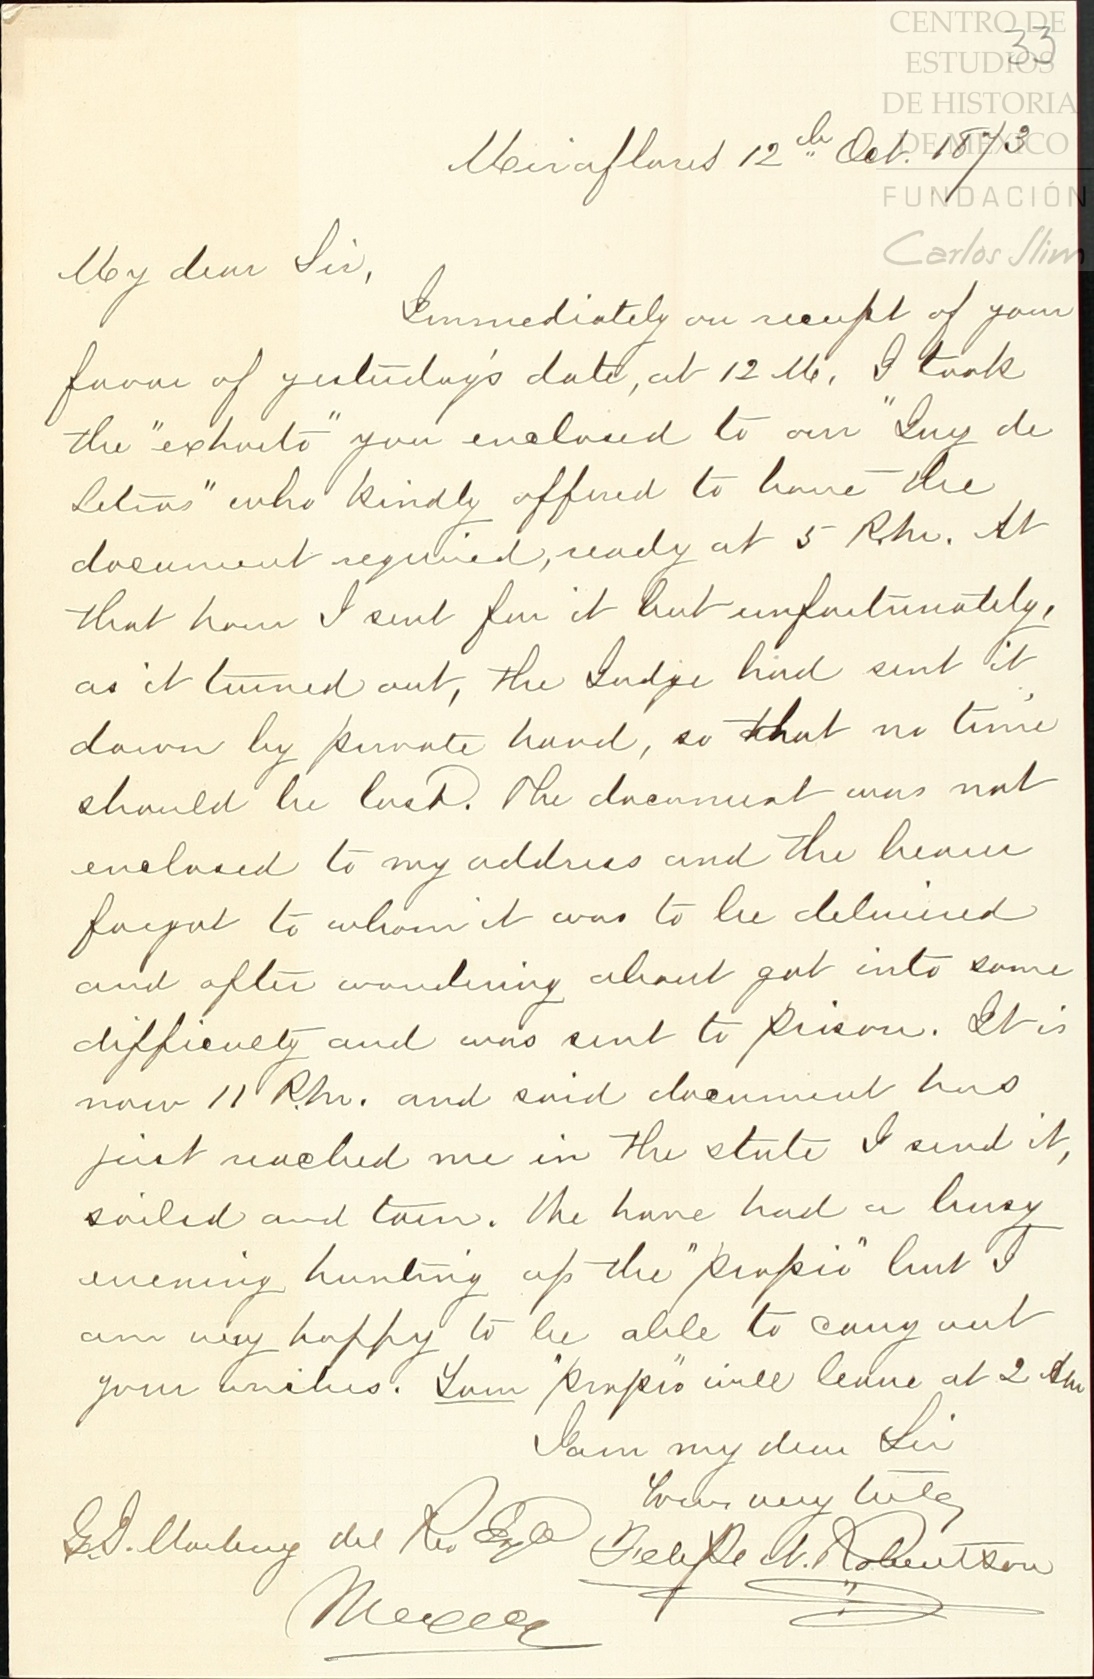 CENTRO DE
ESTUDIOS
DE HISTORIA
DE MÉXICO
FUNDACIÓN
Carlos Slim
33
Miraflores 12th Oct. 1873
My dear Sir,
Immediately on receipt of your
favor of yesterday's date, at 12 M, I took
the "exhorto" you enclosed to our "Juez de
Letras" who kindly offered to have the
document required, ready at 5 P.M. At
that hour I sent for it but unfortunately,
as it turned out, the Judge had sent it
down by private hand, so that no time
should be lost. The document was not
enclosed to my address and the bearer
forgot to whom it was to be delivered
and after wandering about got into some
difficulty and was sent to prison. It is
now 11 P.M. and said document has
just reached me in the state I send it,
soiled and torn. We have had a busy
evening hunting up the "propio" but I
am very happy to be able to carry out
your wishes. Your "propio" will leave at 2 AM
I am my dear Sir
Yours very truly
Felipe N. Robertson
del Rio Esqre
Mexico